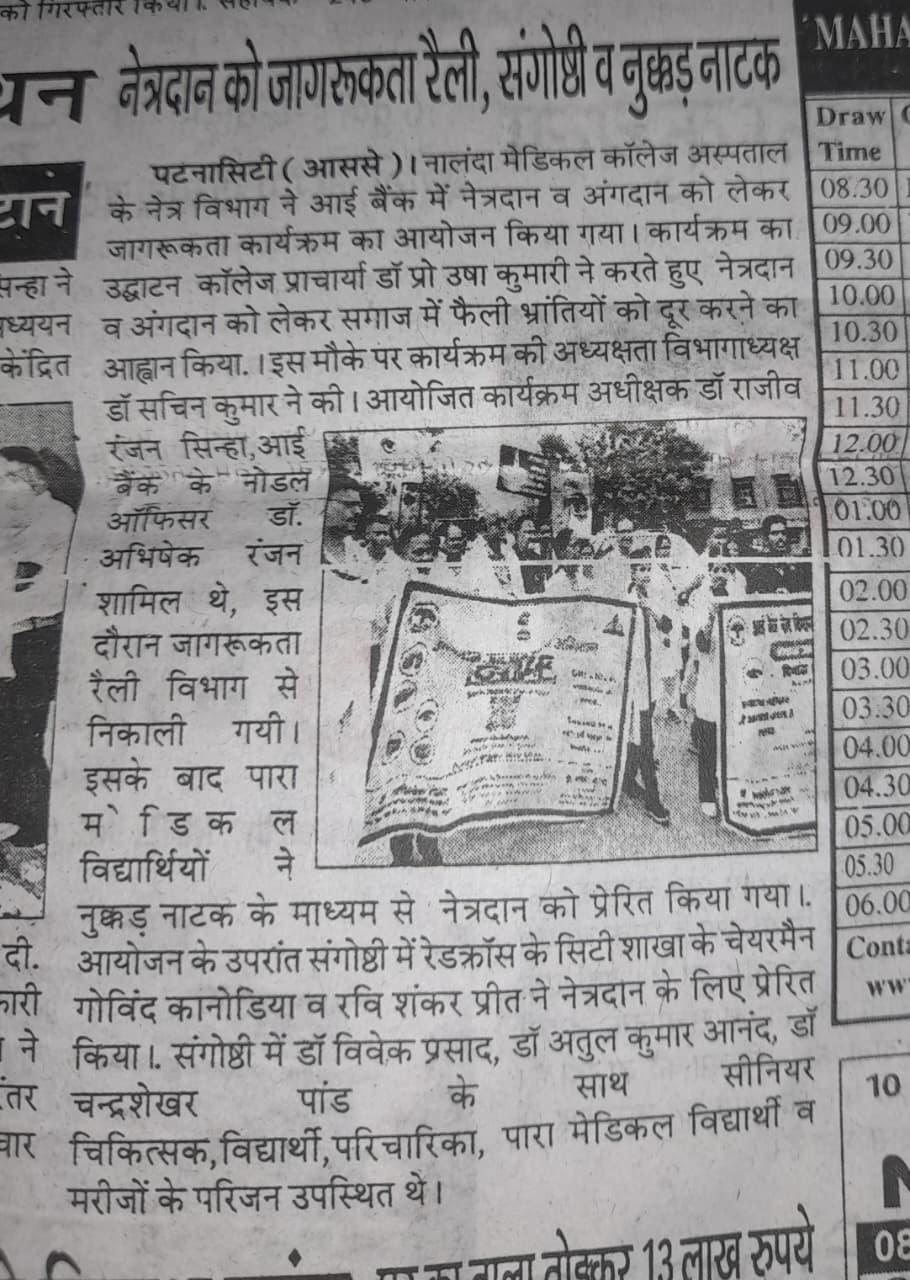 को गिरफ्तार किया।
थन
नेत्रदान को जागरूकता रैली, संगोष्ठी व नुक्कड़ नाटक
पटनासिटी ( आससे )। नालंदा मेडिकल कॉलेज अस्पताल
के नेत्र विभाग ने आई बैंक में नेत्रदान व अंगदान को लेकर
जागरूकता कार्यक्रम का आयोजन किया गया। कार्यक्रम का
उद्घाटन कॉलेज प्राचार्या डॉ प्रो उषा कुमारी ने करते हुए नेत्रदान
व अंगदान को लेकर सगाज में फैली भ्रांतियों को दूर करने का
आह्वान किया. । इस मौके पर कार्यक्रम की अध्यक्षता विभागाध्यक्ष
डॉ सचिन कुमार ने की। आयोजित कार्यक्रम अधीक्षक डॉ राजीव
रंजन सिन्हा,आई
बैंक के नोडल
ऑफिसर डॉ.
अभिषेक रंजन
शामिल थे, इस
दौरान जागरूकता
रैली विभाग से
निकाली गयी।
इसके बाद पारा
मेडिकल
विद्यार्थियों ने
नुक्कड़ नाटक के माध्यम से नेत्रदान को प्रेरित किया गया।.
आयोजन के उपरांत संगोष्ठी में रेडक्रॉस के सिटी शाखा के चेयरमैन
गोविंद कानोडिया व रवि शंकर प्रीत ने नेत्रदान के लिए प्रेरित
किया।. संगोष्ठी में डॉ विवेक प्रसाद, डॉ अतुल कुमार आनंद, डॉ
चन्द्रशेखर पांड के साथ सीनियर
चिकित्सक,विद्यार्थी,परिचारिका, पारा मेडिकल विद्यार्थी व
मरीजों के परिजन उपस्थित थे।
टान
सन्हा ने
ध्ययन
केंद्रित
दी.
कारी
ने
तर
वार
MAHA
Draw
Time
08.30
09.00
09.30
10.00
10.30
11.00
11.30
12.00
12.30
01.00
01.30
02.00
02.30
03.00
03.30
04.00
04.30
05.00
05.30
06.00
Conta
ww
10
N
08
का ताला तोड़कर 13 लाख रुपये